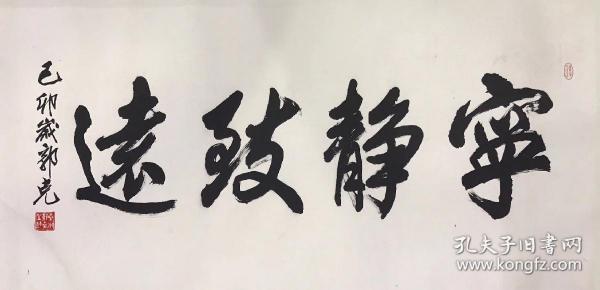 寧静致遠
己卯歲郭克
孔夫子旧書网
www.kongfz.com